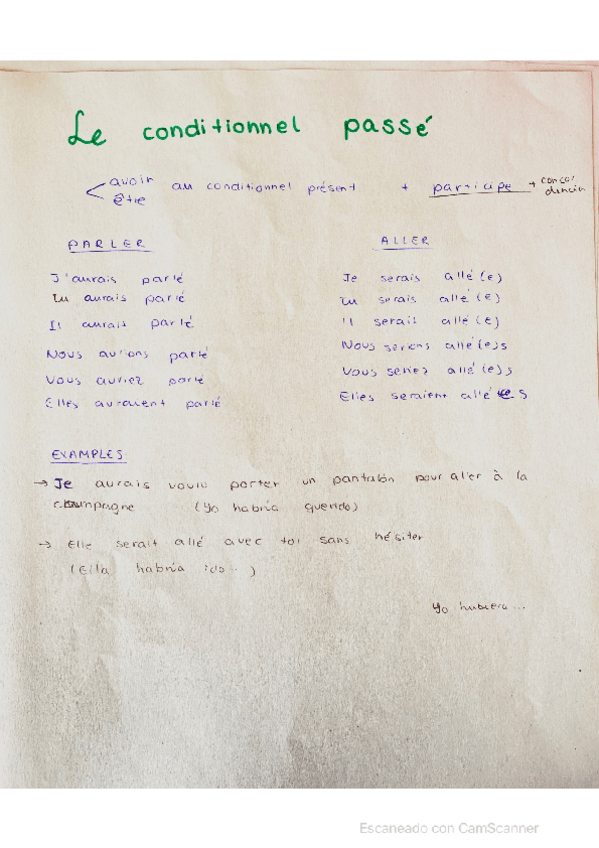 Le conditionnel passé
avoir au conditionnel présent + participe + concordancia
être
PARLER
J'aurais parlé
Tu aurais parlé
Il aurait parlé
Nous aurions parlé
Vous auriez parlé
Elles auraient parlé
ALLER
Je serais allé(e)
Tu serais allé(e)
Il serait allé(e)
Nous serions allé(e)s
Vous seriez allé(e)s
Elles seraient allées
EXAMPLES
→ Je aurais voulu porter un pantalón pour aller à la
campagne (Yo habría querido)
→ Elle serait allé avec toi sans hésiter
(Ella habría ido...)
Yo hubiera...
Escaneado con CamScanner